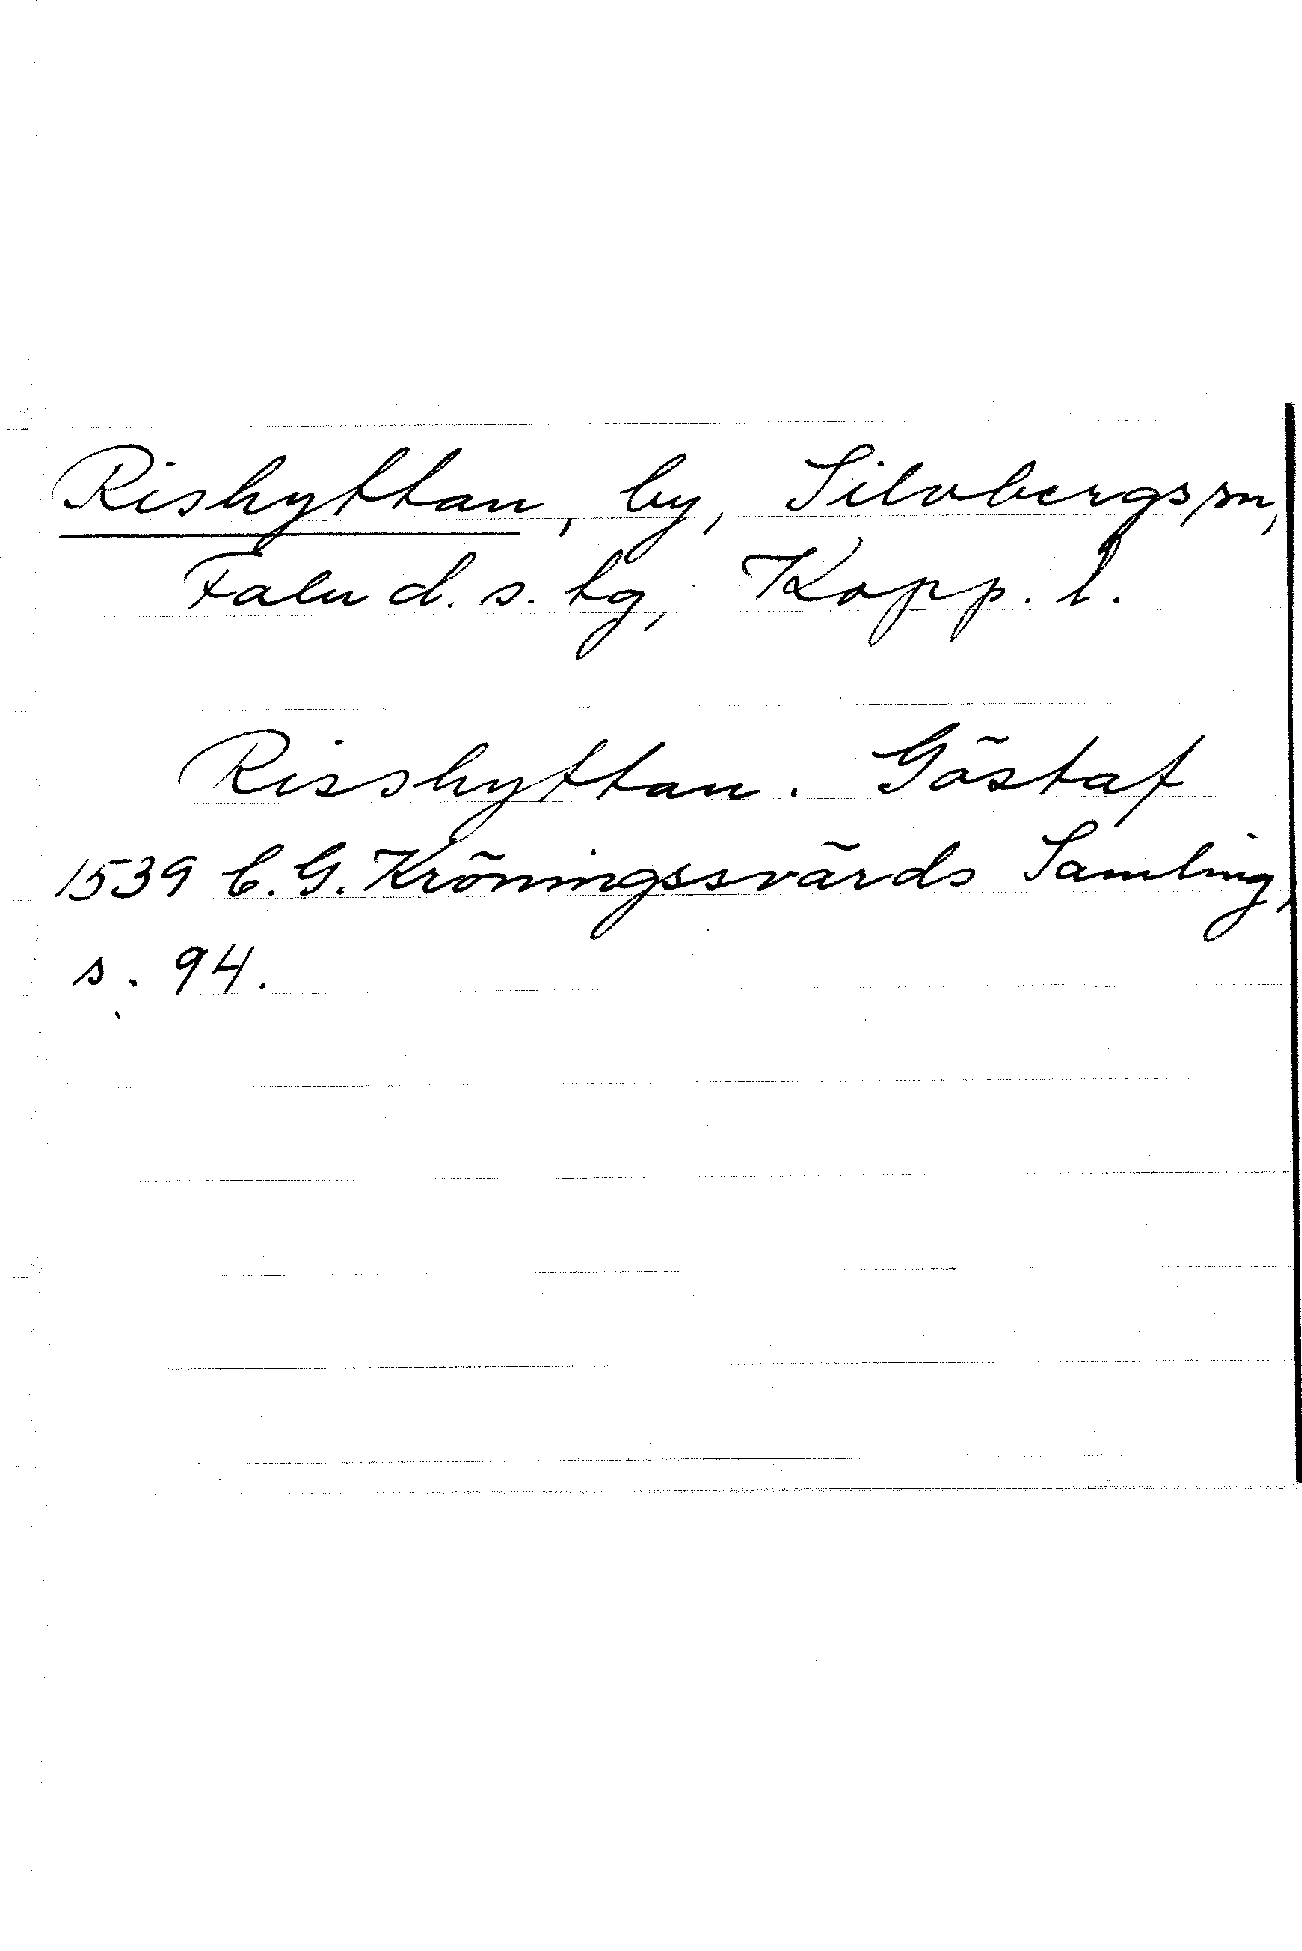 Rishyttan, by, Silvbergs sn,
Falu d. s. tg, Kopp. l.
Risshyttan. Göstaf
1539 C. G. Kröningssvärds Samling,
s. 94.